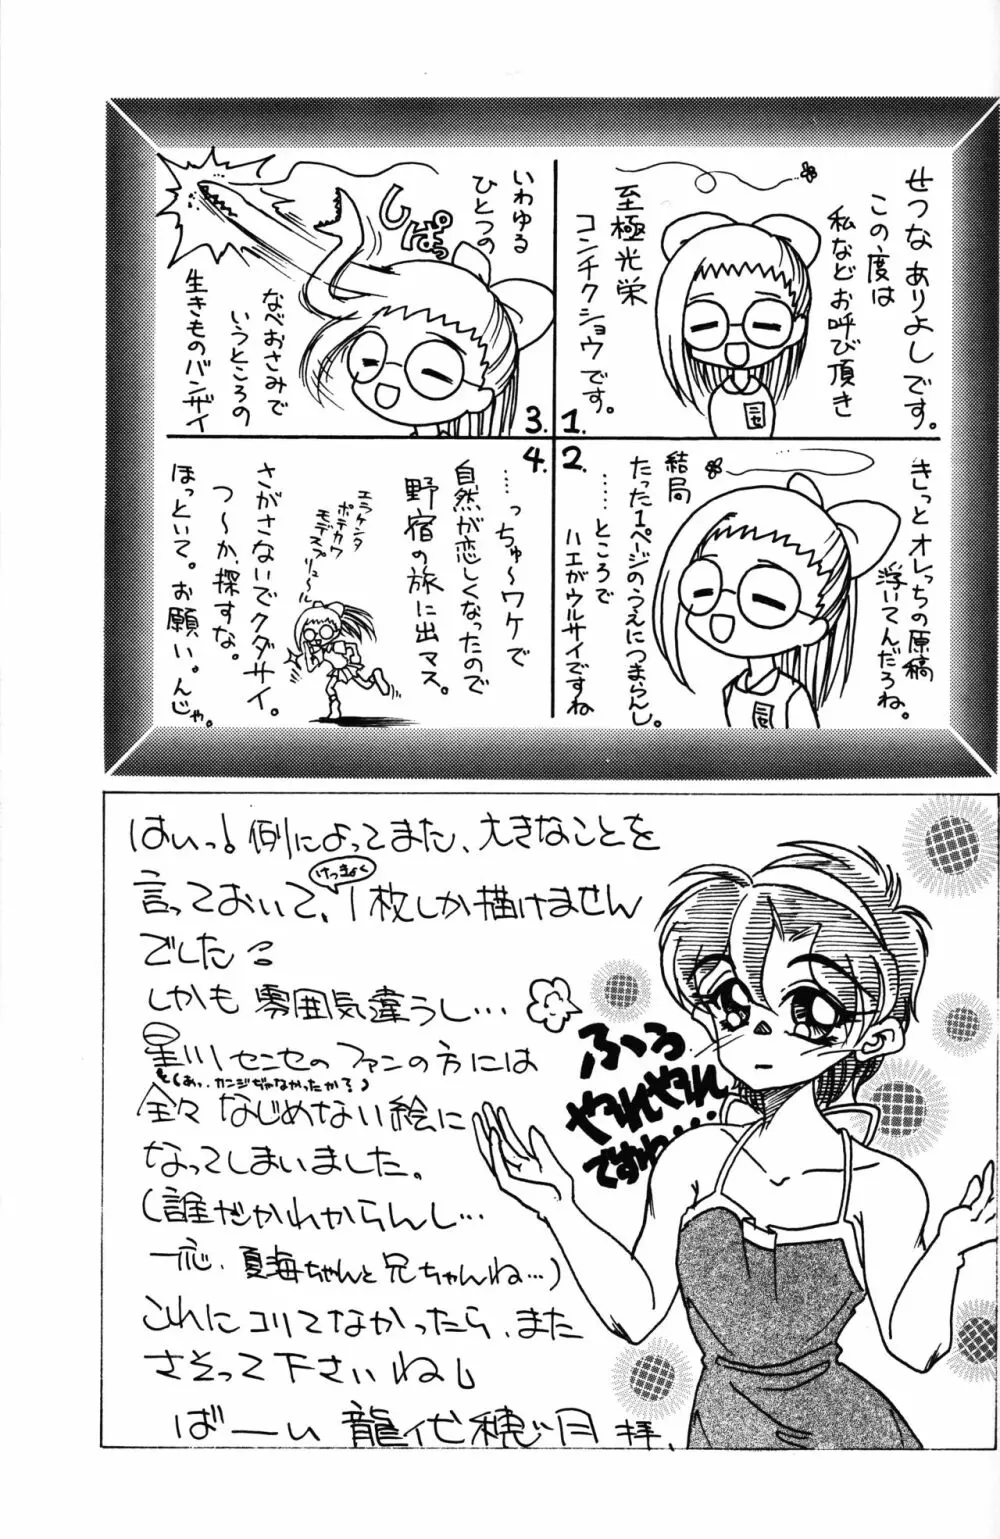 1.
せつなありよしです。
この度は
私などお呼び頂き
至極光栄
コンチクショウです。
ニセ
2.
きっとオレっちの原稿
浮いてんだろね。
結局
たった1ページのうえにつまらんし。
……ところで
ハエがウルサイですね
3.
いわゆる
ひとつの
しぱっ
なべおさみで
いうところの
生きものバンザイ
4.
……っちゅ〜ワケで
自然が恋しくなったので
野宿の旅に出マス。
さがさないでクダサイ。
つ〜か探すな。
ほっといて。お願い。んじゃ。
はいっ!例によってまた、大きなことを
言っておいて、けっきょく1枚しか描けません
でした
しかも雰囲気違うし…
星川センセのファンの方には
(あっ、カンジぢゃなかったか?)
全々なじめない絵に
なってしまいました。
(誰だかわからんし…
一応、夏海ちゃんと兄ちゃんね…)
これにコリてなかったら、また
さそって下さいねし
ばーい 龍代穂月 拝、
ふぅ
やれやれ
ですね…